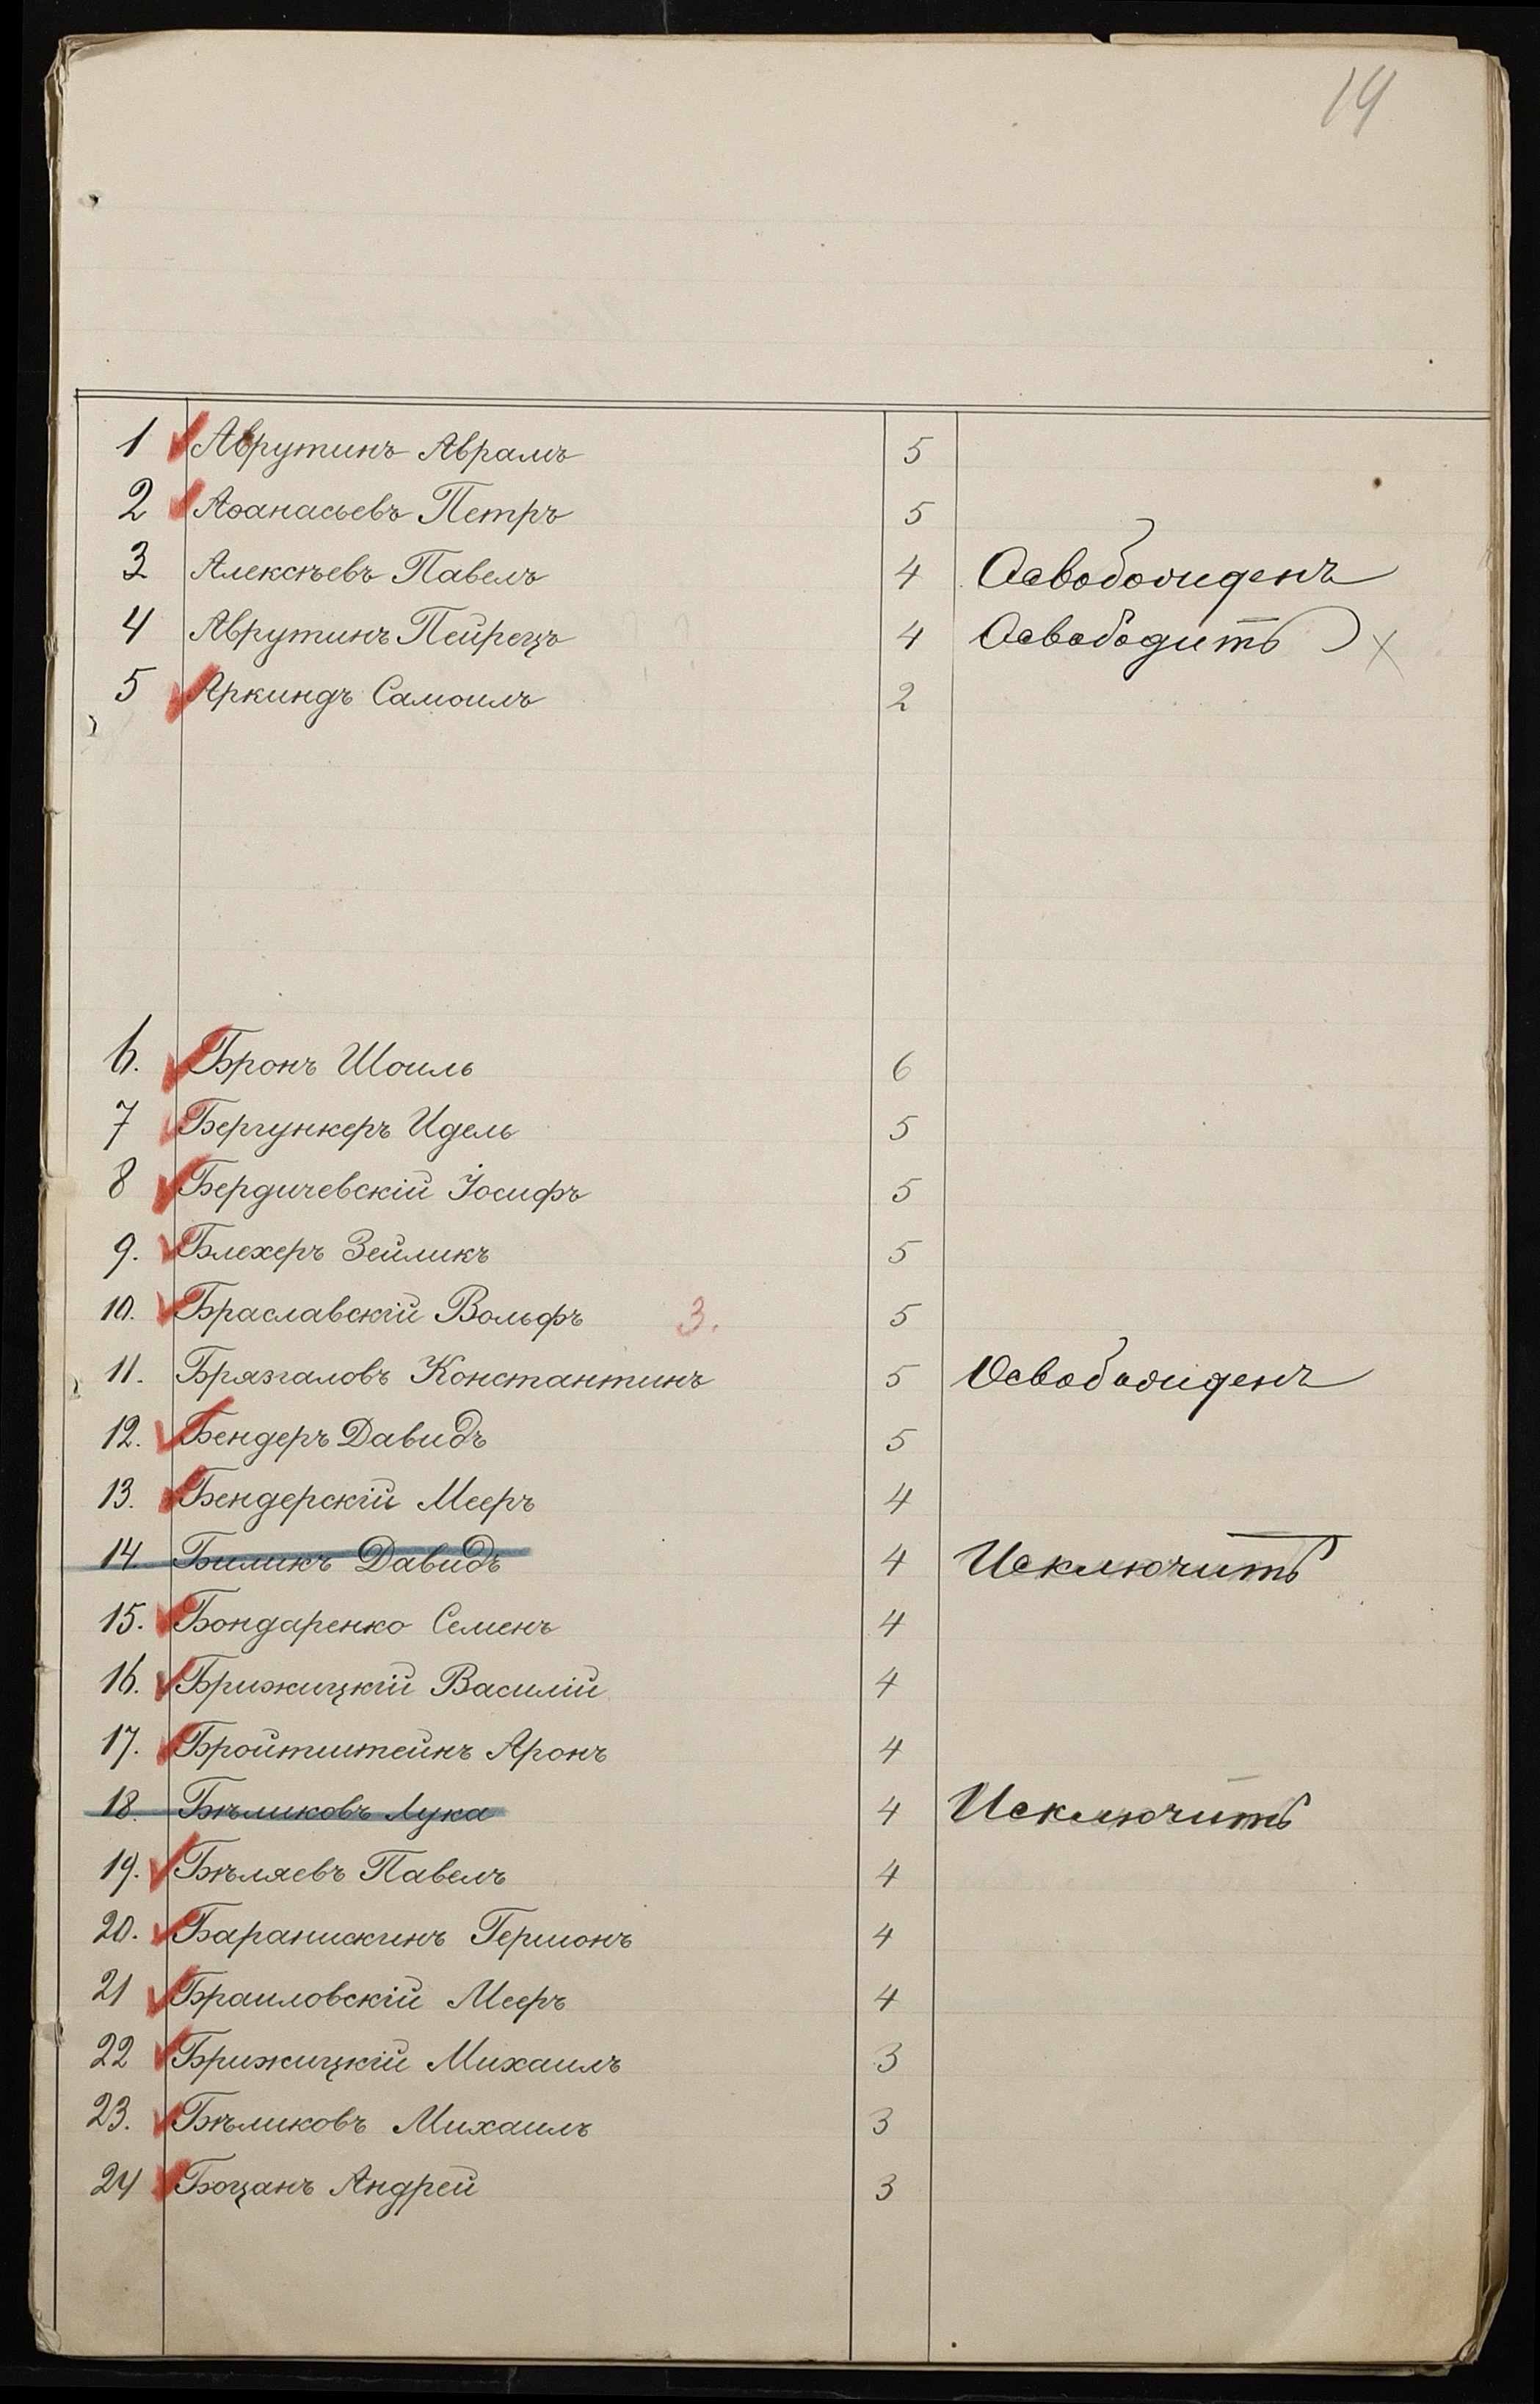 14
1 Аврутинъ Аврамъ 5
2 Аѳанасьевъ Петръ 5
3 Алексѣевъ Павелъ 4 Освобожденъ
4 Аврутинъ Пейрецъ 4 Освободить
5 Аркиндъ Самоилъ 2
6. Бронъ Шоиль 6
7 Бергункеръ Идель 5
8 Бердичевскій Іосифъ 5
9. Блехеръ Зейликъ 5
10. Браславскій Вольфъ 3. 5
11. Брязгаловъ Константинъ 5 Освобожденъ
12. Бендеръ Давидъ 5
13. Бендерскій Мееръ 4
14. Биликъ Давидъ 4 Исключить
15. Бондаренко Семенъ 4
16. Брижицкій Василій 4
17. Бройтштейнъ Аронъ 4
18. Бѣликовъ Лука 4 Исключить
19. Бѣляевъ Павелъ 4
20. Гершонъ 4
21 Браиловскій Мееръ 4
22 Брижицкій Михаилъ 3
23. Бѣликовъ Михаилъ 3
24 Боцанъ Андрей 3